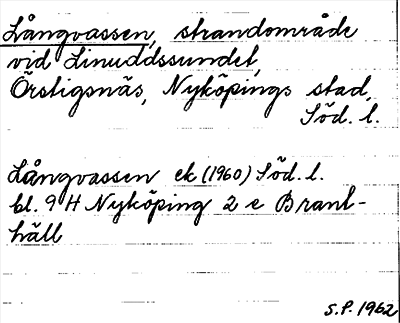 Långvassen, strandområde
vid Linuddssundet,
Örstigsnäs, Nyköpings stad,
Söd. l.
Långvassen ek (1960) Söd. l.
bl. 9 H Nyköping 2 e Brant-
häll
S.P. 1962